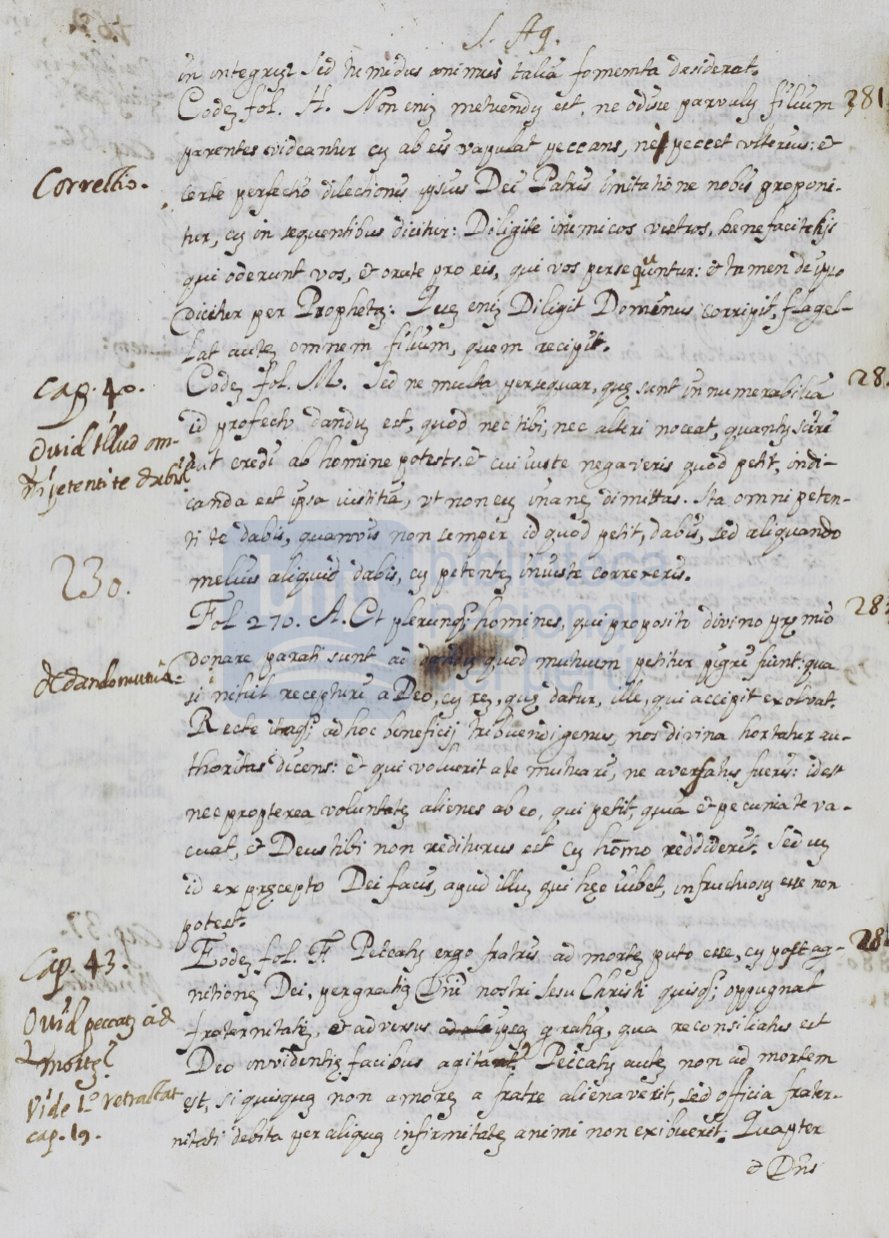 S. Ag.
in integruz sed tumidus animus talia fomenta desiderat.
Codez fol. H. Non eniz metuendũ est, ne odisse parvulũ filium 281
parentes videantur cũ ab eis vapulat peccans, ne peccet ulterius: et
Correctio.
certe perfectio dilectionis ipsius Dei Patris imitatione nobis proponi-
tur, cũ in sequentibus dicitur: Diligite inimicos vestros, benefacite his
qui oderunt vos, et orate pro eis, qui vos persequuntur: et tamen de ipso
dicitur per Prophetã: Quẽ eniz Diligit Dominus corripit, flagel-
lat autẽ omnem filium, quem recipit.
Cap. 40.
Codez fol. M. Sed ne multa persequar, quę sunt innumerabilia 28
id profecto dandũ est, quod nec tibi, nec alteri noceat, quantũ sciri
Quid illud om-
ni petenti te dabis
aut credi ab homine potest. et cui iuste negaveris quod petit, indi-
canda est ipsa iustitia, ut non eũ inanẽ dimittas. Ita omni peten-
ti te dabis, quamvis non semper id quod petit, dabis, sed aliquando
melius aliquid dabis, cũ petentẽ iniuste correxeris.
230.
Fol 270. A. Et plerunq; homines, qui proposito divino pręmio 28
donare parati sunt ad quod mutuum petitur pigri fiunt, qua
de dando mutuo
si nihil recepturi a Deo, cũ rẽ, quę datur, ille, qui accipit exolvat.
Recte itaq; ad hoc beneficij tribuendi genus, nos divina hortatur au-
thoritas dicens: et qui voluerit a te mutuari, ne aversatus fueris: id est
nec propterea voluntatẽ alienes ab eo, qui petit, quia et pecunia te va-
cuat, et Deus tibi non rediturus est cũ homo reddiderit. Sed cũ
id ex pręcepto Dei facis, apud illũ, qui hęc iubet, infructuosũ esse non
potest.
Cap. 43.
Eodez fol. F. Peccatũ ergo fratris ad mortẽ puto esse, cũ post ag- 28
nitionẽ Dei, per gratiã Dñi nostri Iesu Christi quisq; oppugnat
Quid peccatũ ad
mortẽ?
fraternitatẽ, et adversus ipsã gratiã, qua reconsiliatus est
Deo invidentię facibus agitat. Peccatũ autẽ non ad mortem
Vide l.º retractat
cap. 19.
est, si quisquã non amorẽ a fratre alienaverit, sed officia frater-
nitati debita per aliquã infirmitatẽ animi non exibuerit. Quapter
et Dñs